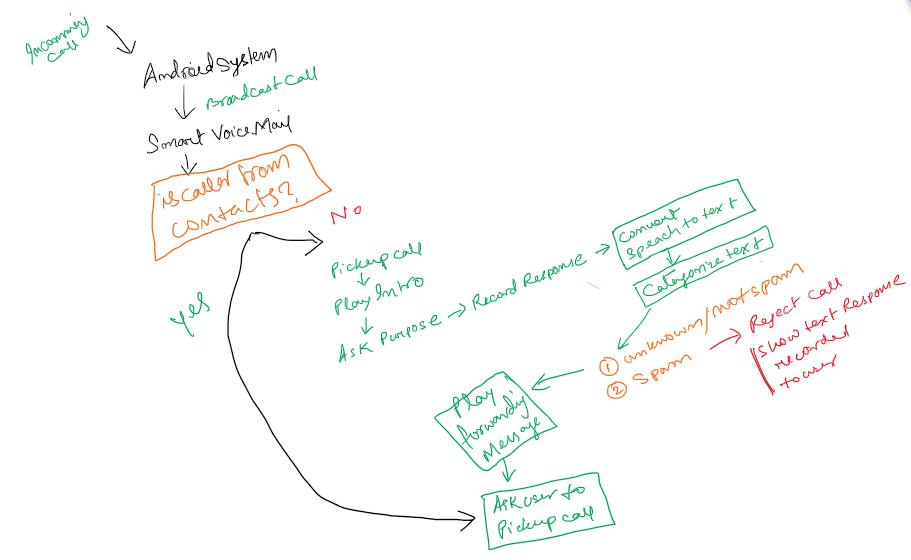 Incomming
call
Android System
Broadcast call
Smart Voice Mail
is caller from
contacts?
No
yes
Pickup call
Play Intro
Ask Purpose
Record Response
Convert
speach to text
Categorize text
① unknown/not spam
② Spam
Reject call
show text Response
recorded
to user
Play
forwarding
Message
Ask user to
Pickup call